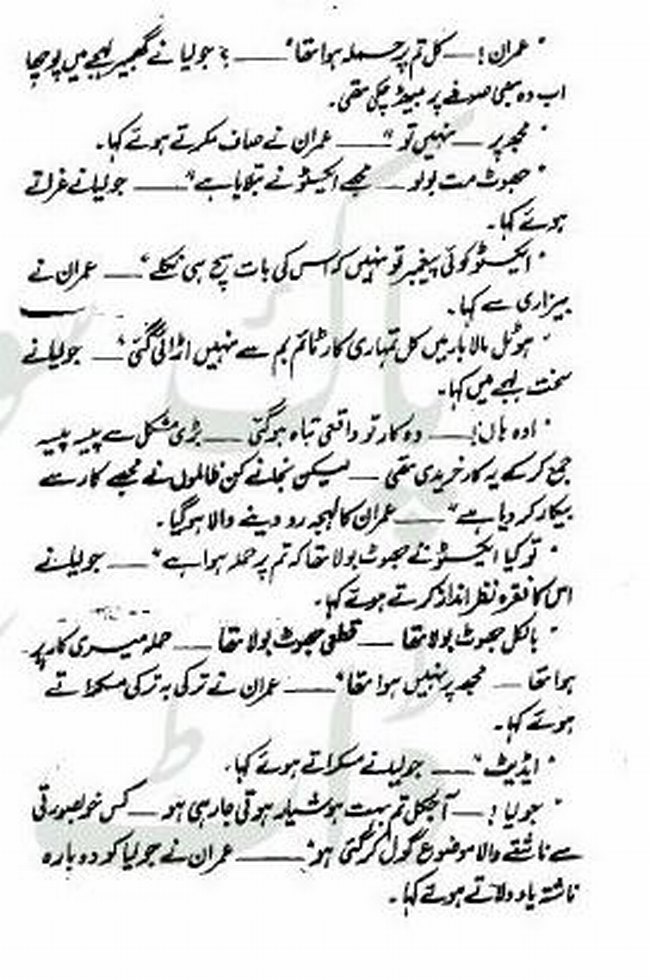 "عمران! — کل تم پر حملہ ہوا تھا" — ؟ جولیا نے گھمبیر لہجے میں پوچھا
اب وہ بھی صوفے پر بیٹھ چکی تھی۔
"مجھ پر — نہیں تو" — عمران نے صاف مکرتے ہوئے کہا۔
"جھوٹ مت بولو — مجھے ایکسٹو نے بتلایا ہے" — جولیا نے غراتے
ہوئے کہا۔
"ایکسٹو کوئی پیغمبر تو نہیں کہ اس کی بات سچ ہی نکلے" — عمران نے
بیزاری سے کہا۔
"ہوٹل مالابار میں کل تمہاری کار ٹائم بم سے نہیں اڑائی گئی" — جولیا نے
سخت لہجے میں کہا۔
"اوہ ہاں! — وہ کار تو واقعی تباہ ہوگئی — بڑی مشکل سے پیسہ پیسہ
جمع کرکے یہ کار خریدی تھی — لیکن نجانے کن ظالموں نے مجھے کار سے
بیکار کر دیا ہے" — عمران کا لہجہ رو دینے والا ہوگیا۔
"تو کیا ایکسٹو نے جھوٹ بولا تھا کہ تم پر حملہ ہوا ہے" — جولیا نے
اس کا فقرہ نظر انداز کرتے ہوئے کہا۔
"بالکل جھوٹ بولا تھا — قطعی جھوٹ بولا تھا — حملہ میری کار پر
ہوا تھا — مجھ پر نہیں ہوا تھا" — عمران نے ترکی بہ ترکی مسکراتے
ہوئے کہا۔
"ایڈیٹ" — جولیا نے مسکراتے ہوئے کہا۔
"جولیا! — آجکل تم بہت ہوشیار ہوتی جا رہی ہو — کس خوبصورتی
سے ناشتے والا موضوع گول کر گئی ہو" — عمران نے جولیا کو دوبارہ
ناشتہ یاد دلاتے ہوئے کہا۔